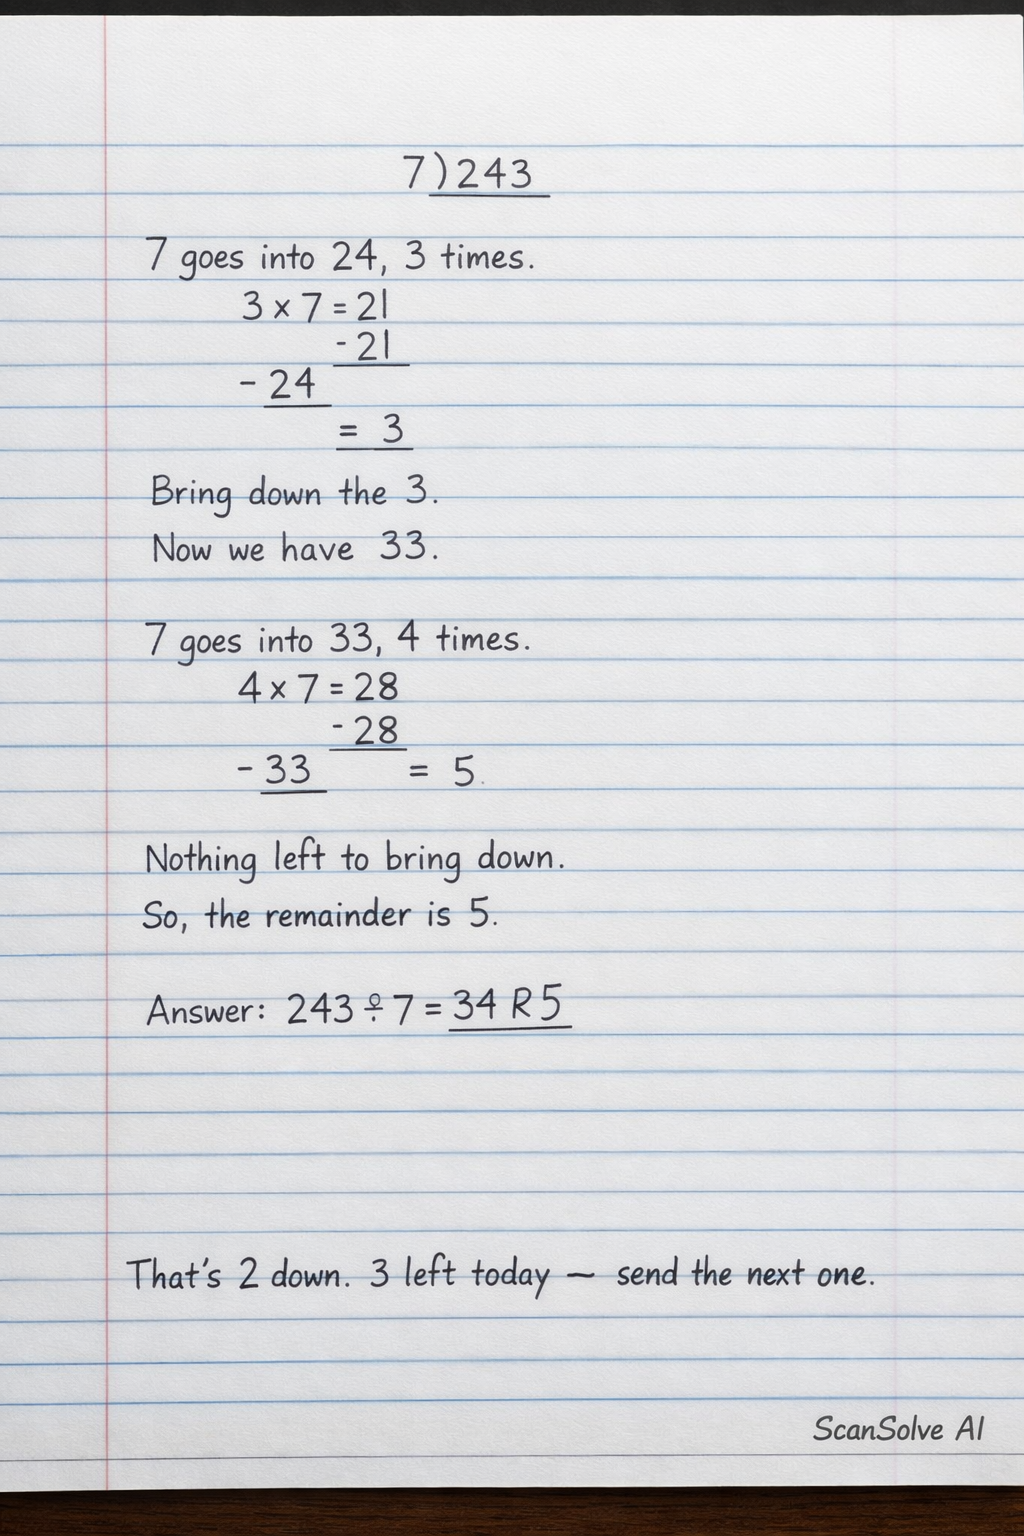 7)243
7 goes into 24, 3 times.
3 x 7 = 21
- 21
- 24
= 3
Bring down the 3.
Now we have 33.
7 goes into 33, 4 times.
4 x 7 = 28
- 28
- 33 = 5.
Nothing left to bring down.
So, the remainder is 5.
Answer: 243 ÷ 7 = 34 R5
That's 2 down. 3 left today — send the next one.
ScanSolve AI